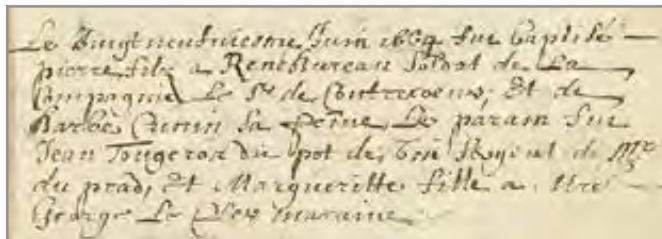 Le Vingt neufviesme Juin 1669 fut baptisé
pierre fils a René Bureau soldat de La
Compagnie Le Sr de Contrecoeur, Et de
Barbe Cunin sa feme, Le parain fut
Jean Fougerox dit pot de Vin de Mr
du prad, Et Margueritte fille a Mre
George Le maraine